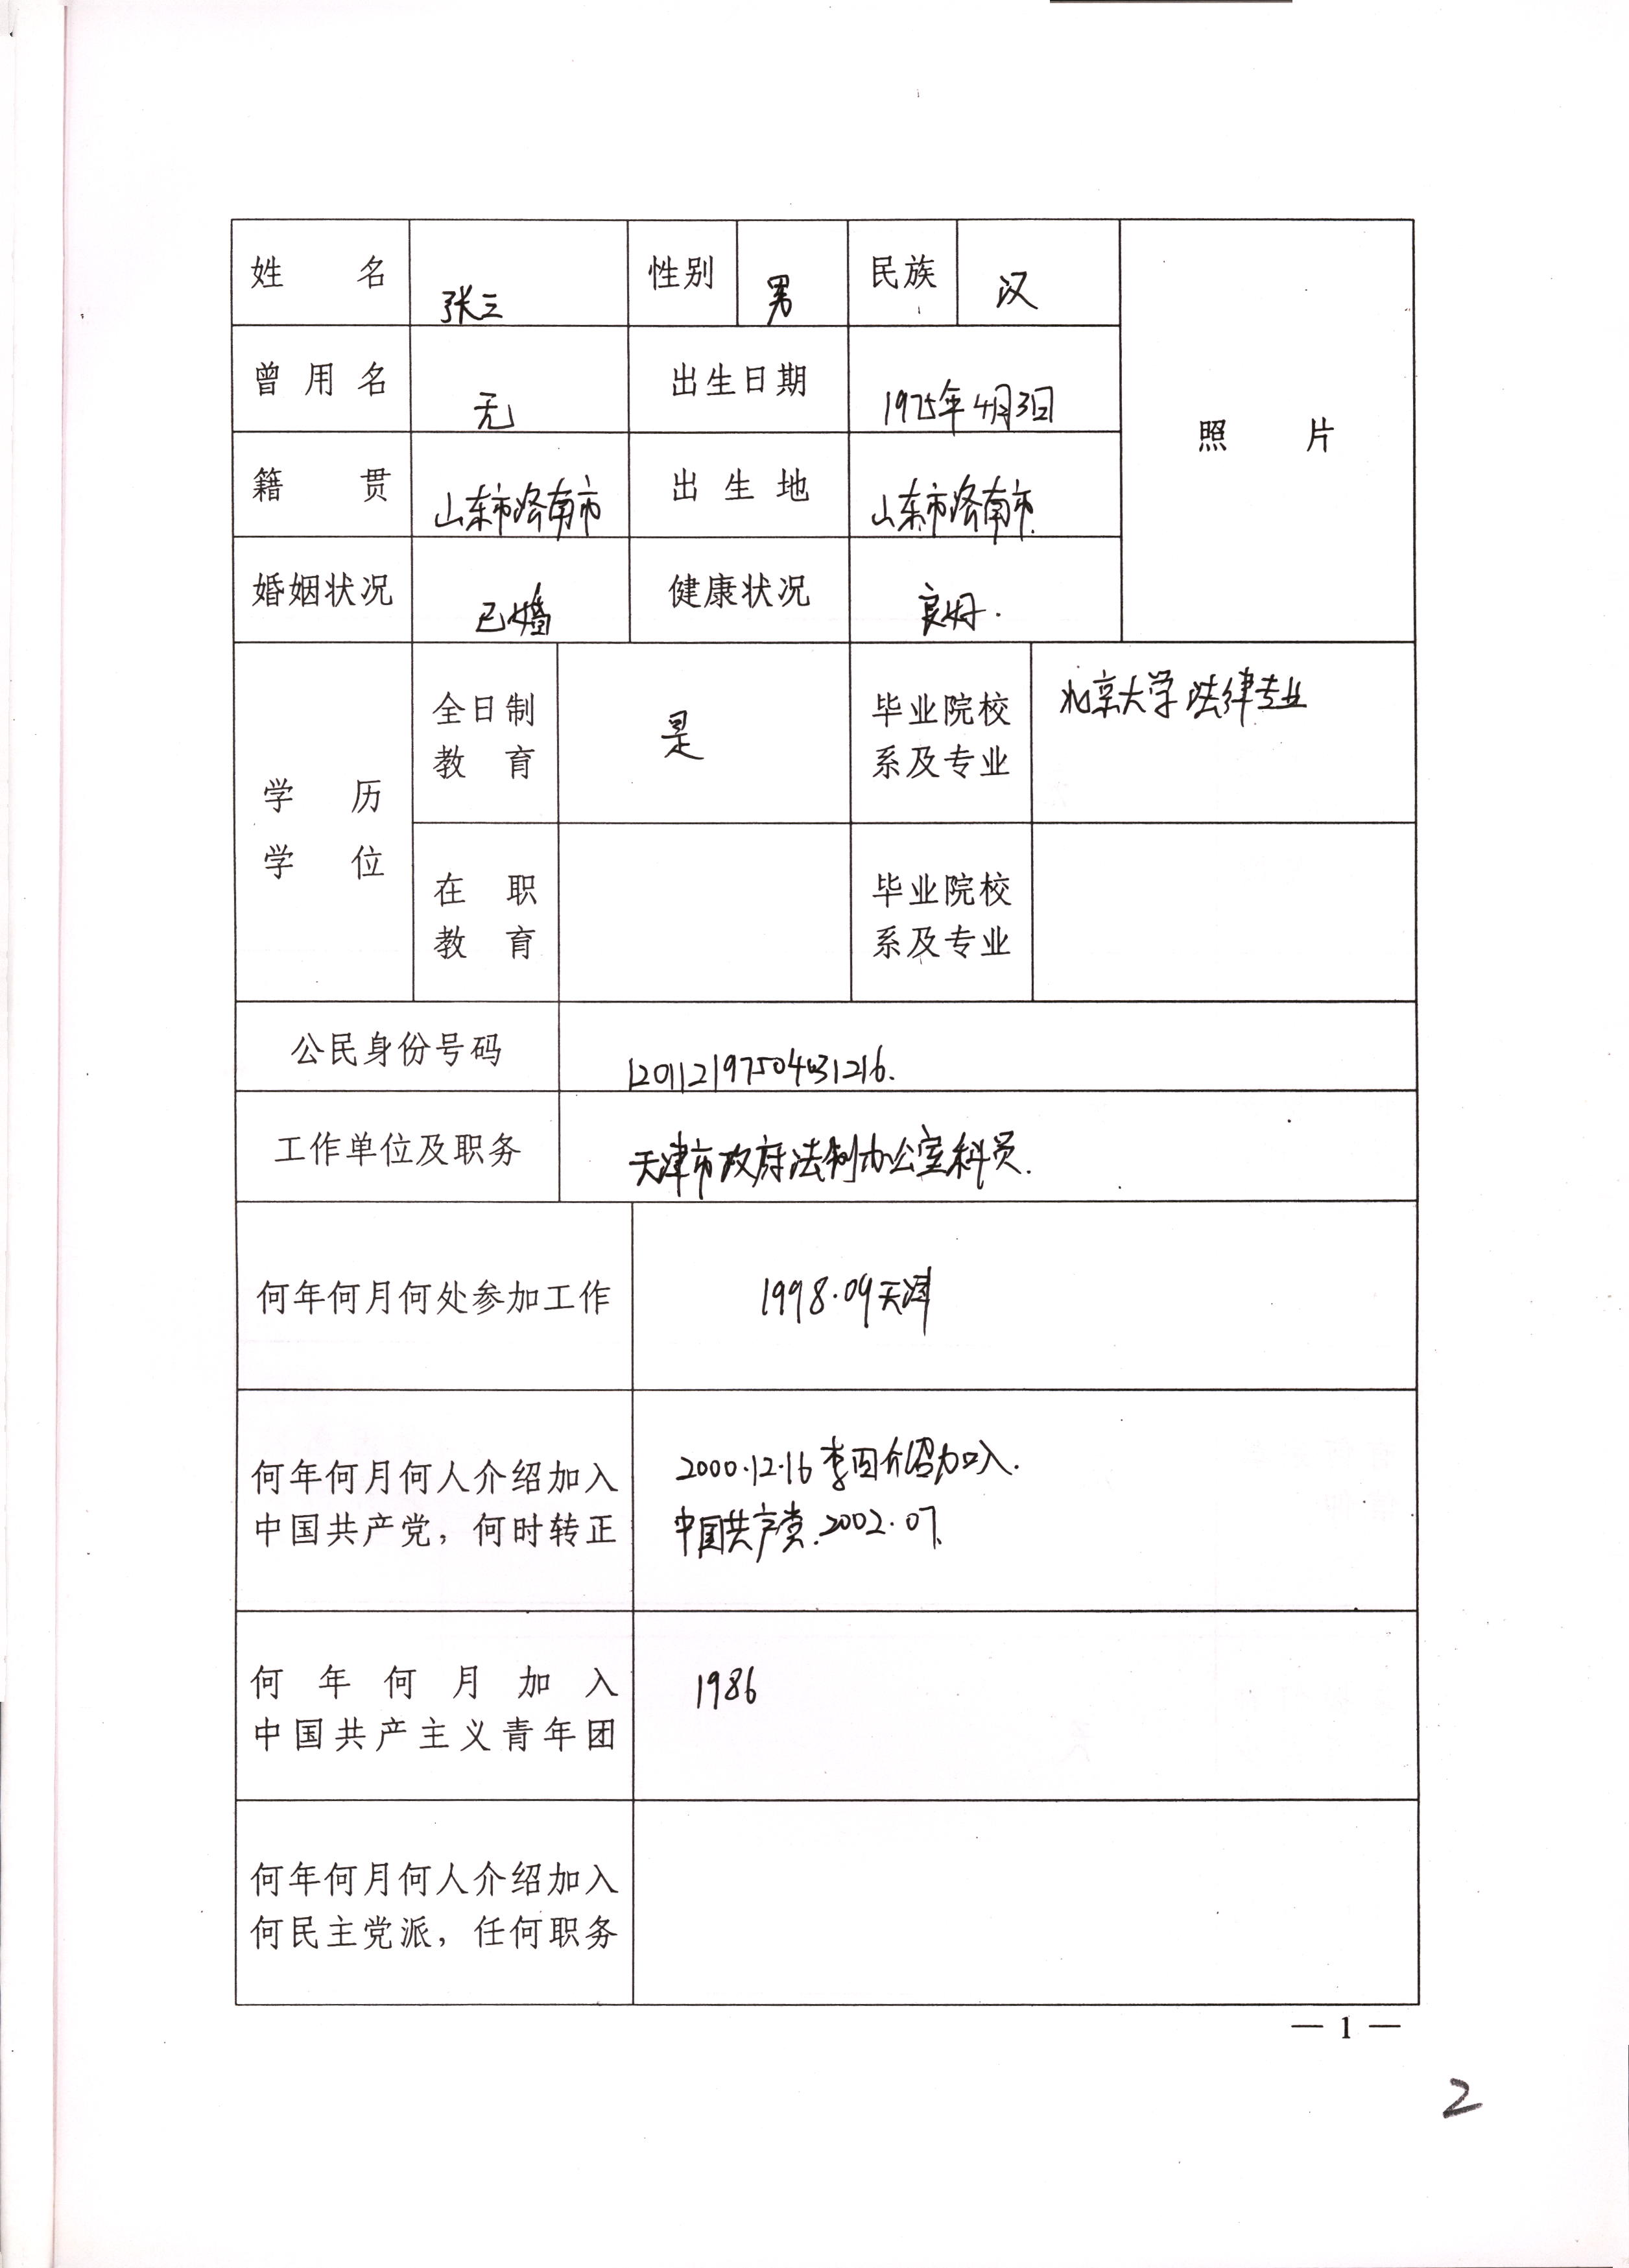 姓 名 张三 性别 男 民族 汉
曾用名 无 出生日期 1975年4月3日
照 片
籍 贯 山东市济南市 出生地 山东市济南市.
婚姻状况 已婚 健康状况 良好.
学 历
学 位
全日制
教 育
是
毕业院校
系及专业
北京大学法律专业
在 职
教 育
毕业院校
系及专业
公民身份号码
工作单位及职务 天津市政府法制办公室科员.
何年何月何处参加工作 1998.09天津
何年何月何人介绍加入
中国共产党，何时转正
2000.12.16李四介绍加入.
中国共产党.2002.07.
何年何月加入
中国共产主义青年团
1986
何年何月何人介绍加入
何民主党派，任何职务
— 1 —
2